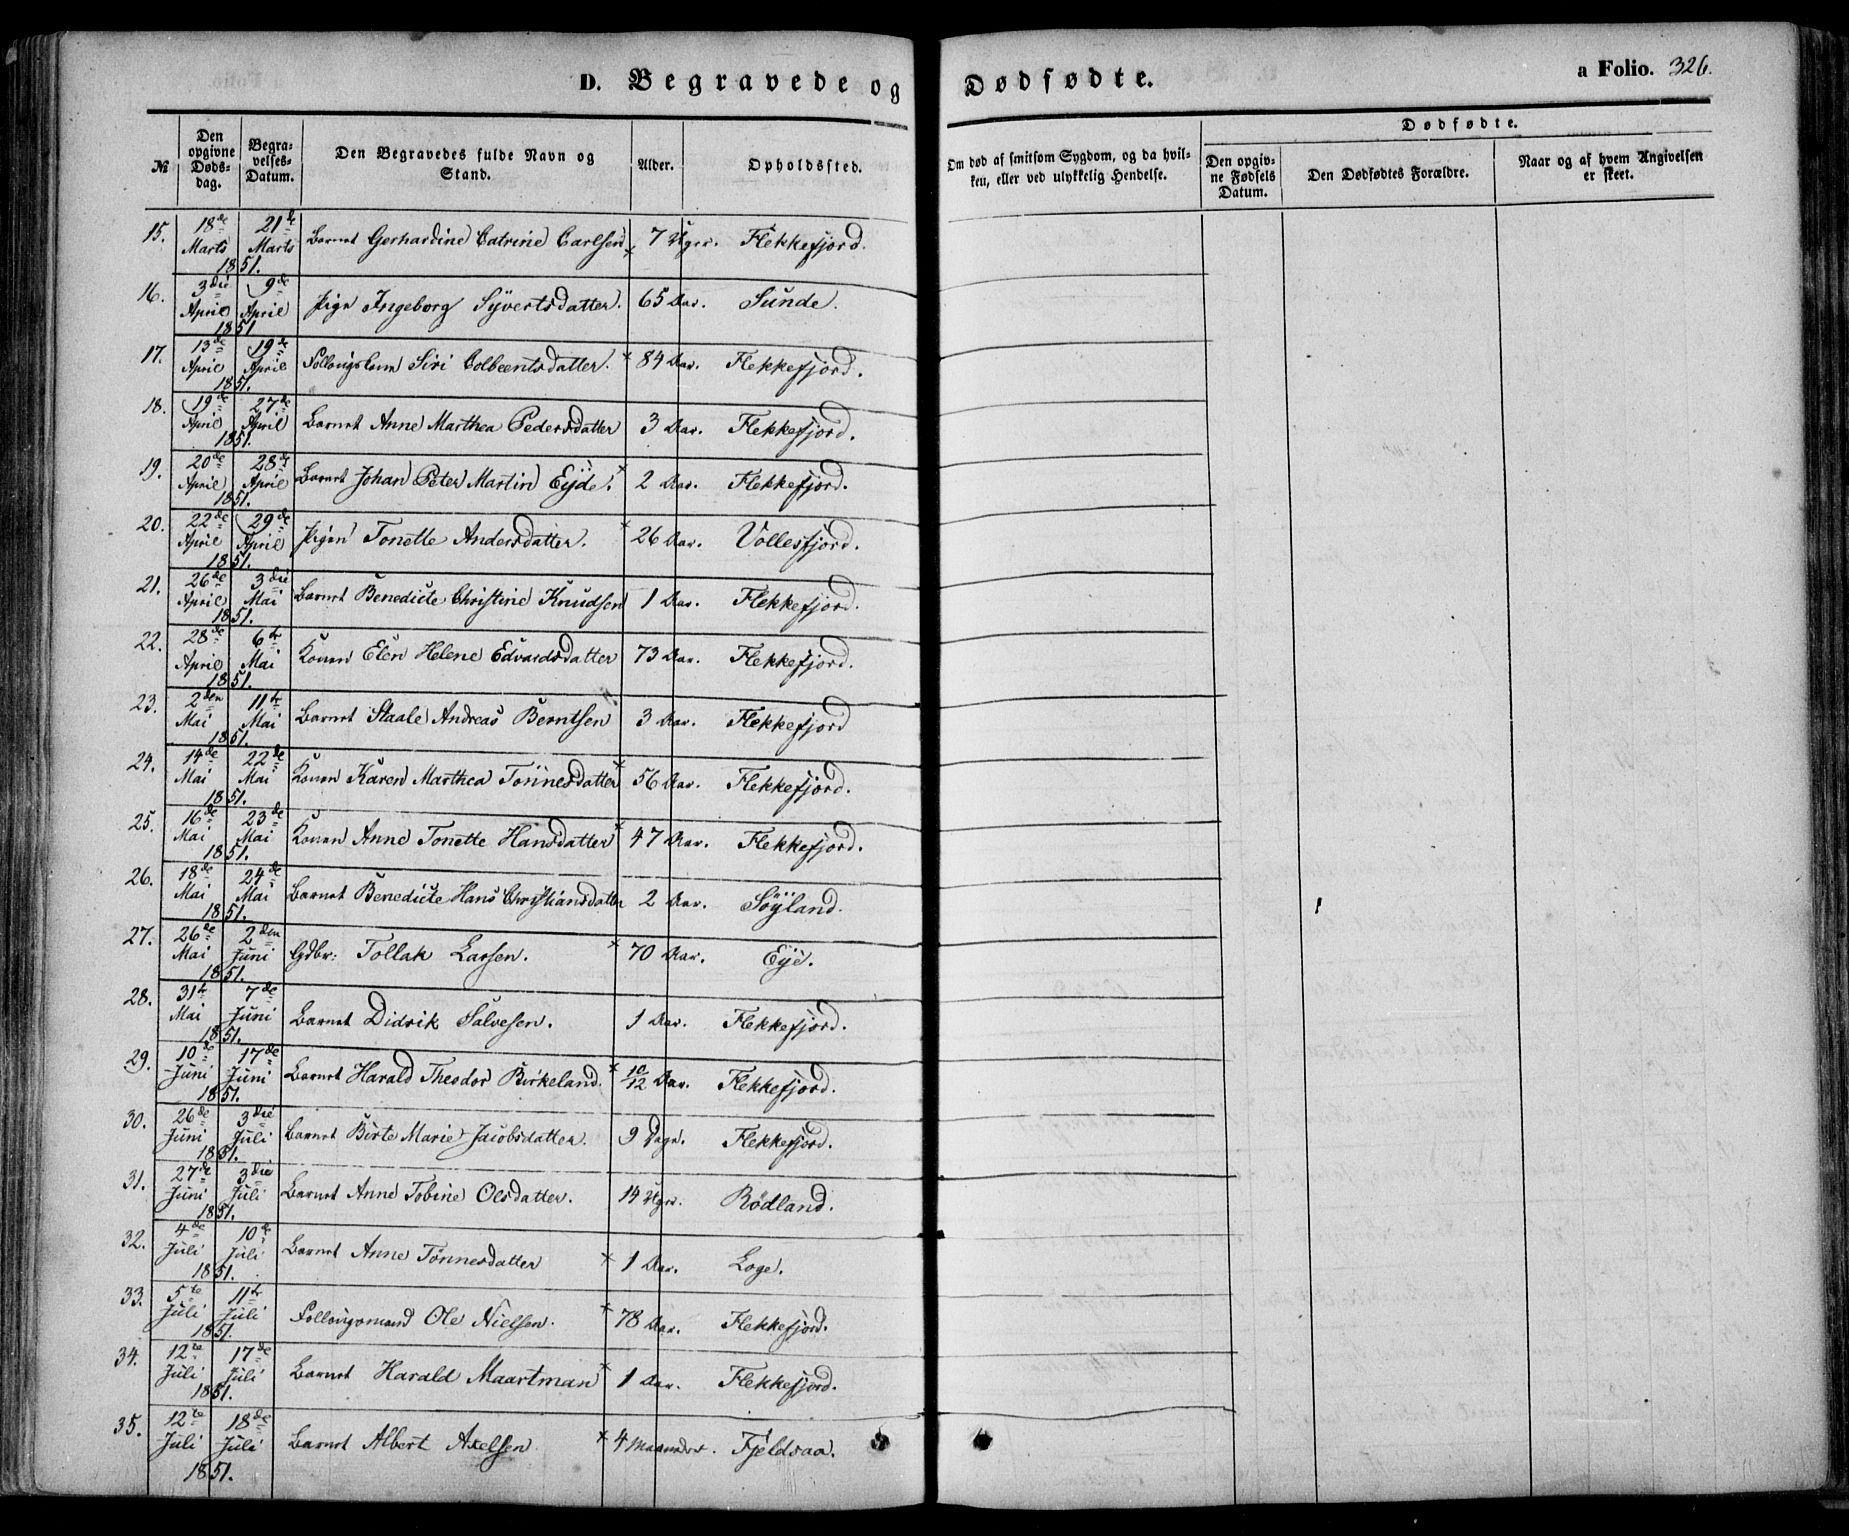 D. Begravede og Dødfødte. a Folio. 326.
№ Den opgivne Døds-dag. Begra-velses-Datum. Den Begravedes fulde Navn og Stand. Alder. Opholdssted. Om død af smitsom Sygdom, og da hvil-ken, eller ved ulykkelig Hendelse. Dødfødte. Den opgiv-ne Fødsels Datum. Den Dødfødtes Forældre. Naar og af hvem Angivelsen er skeet.
15. 18de Marts 21de Marts 1851. Barnet Gerhardine Catrine Carlsen 7 Uger. Flekkefjord.
16. 3die April 9de April 1851 Pigen Ingeborg Syvertsdatter. 65 Aar. Sunde.
17. 13de April 19de April 1851. Siri Colbeentsdatter. 84 Aar. Flekkefjord.
18. 19de April 27de April 1851. Barnet Anne Marthea Pedersdatter 3 Aar. Flekkefjord.
19. 20de April 28de April 1851. Barnet Johan Peter Martin Eyde. 2 Aar. Flekkefjord.
20. 22de April 29de April 1851. Pigen Tonette Andersdatter. 26 Aar. Vollesfjord.
21. 26de April 3die Mai 1851. Barnet Benedicte Christine Knudsen 1 Aar. Flekkefjord.
22. 28de April 6te Mai 1851. Konen Elen Helene Edvardsdatter 73 Aar. Flekkefjord.
23. 2den Mai 11te Mai 1851. Barnet Staale Andreas Berntsen 3 Aar. Flekkefjord
24. 14de Mai 22de Mai 1851. Konen Karen Marthea Tönnesdatter 56 Aar. Flekkefjord.
25. 16de Mai 23de Mai 1851. Konen Anne Tonette Hansdatter 47 Aar. Flekkefjord.
26. 18de Mai 24de Mai 1851. Barnet Benedicte Hans Christiansdatter 2 Aar. Söyland.
27. 26de Mai 2den Juni 1851. Gdbr: Tollak Larsen. 70 Aar. Eye.
28. 31te Mai 7de Juni 1851. Barnet Didrik Salvesen. 1 Aar. Flekkefjord.
29. 10de Juni 17de Juni 1851. Barnet Harald Theodor Birkeland. 10/12 Aar. Flekkefjord.
30. 26de Juni 3die Juli 1851. Barnet Birte Marie Jacobsdatter. 9 Dage. Flekkefjord.
31. 27de Juni 3die Juli 1851. Barnet Anne Tobine Olsdatter. 14 Uger. Rödland.
32. 4de Juli 10de Juli 1851. Barnet Anne Tönnesdatter 1 Aar. Loge.
33. 5te Juli 11te Juli 1851. Follougsmand Ole Nielsen. 78 Aar. Flekkefjord.
34. 12te Juli 17de Juli 1851. Barnet Harald Maartman 1 Aar. Flekkefjord.
35. 12te Juli 18de Juli 1851. Barnet Albert Axelsen. 4 Maaneder. Fjeldsaa.